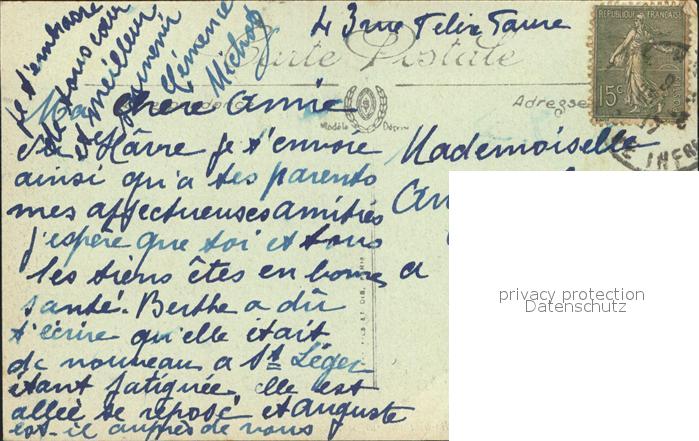 43 rue Felix Faure
Carte Postale
je t'embrasse
de tout cœur
et meilleur
souvenir
Clémence
Michog
REPUBLIQUE FRANÇAISE
15c
Adresse
Modèle Déposé
INFRE
Ma chère Amie
du Hâvre je t'envoie
ainsi qu'a tes parents
mes affectueuses amitiés
j'espère que toi et tous
les tiens êtes en bonne
santé. Berthe a dû
t'écrire qu'elle était
de nouveau a St Léger
étant fatiguée, elle est
allée se reposé, et Auguste
est-il auprès de vous
Mademoiselle
An
a
privacy protection
Datenschutz